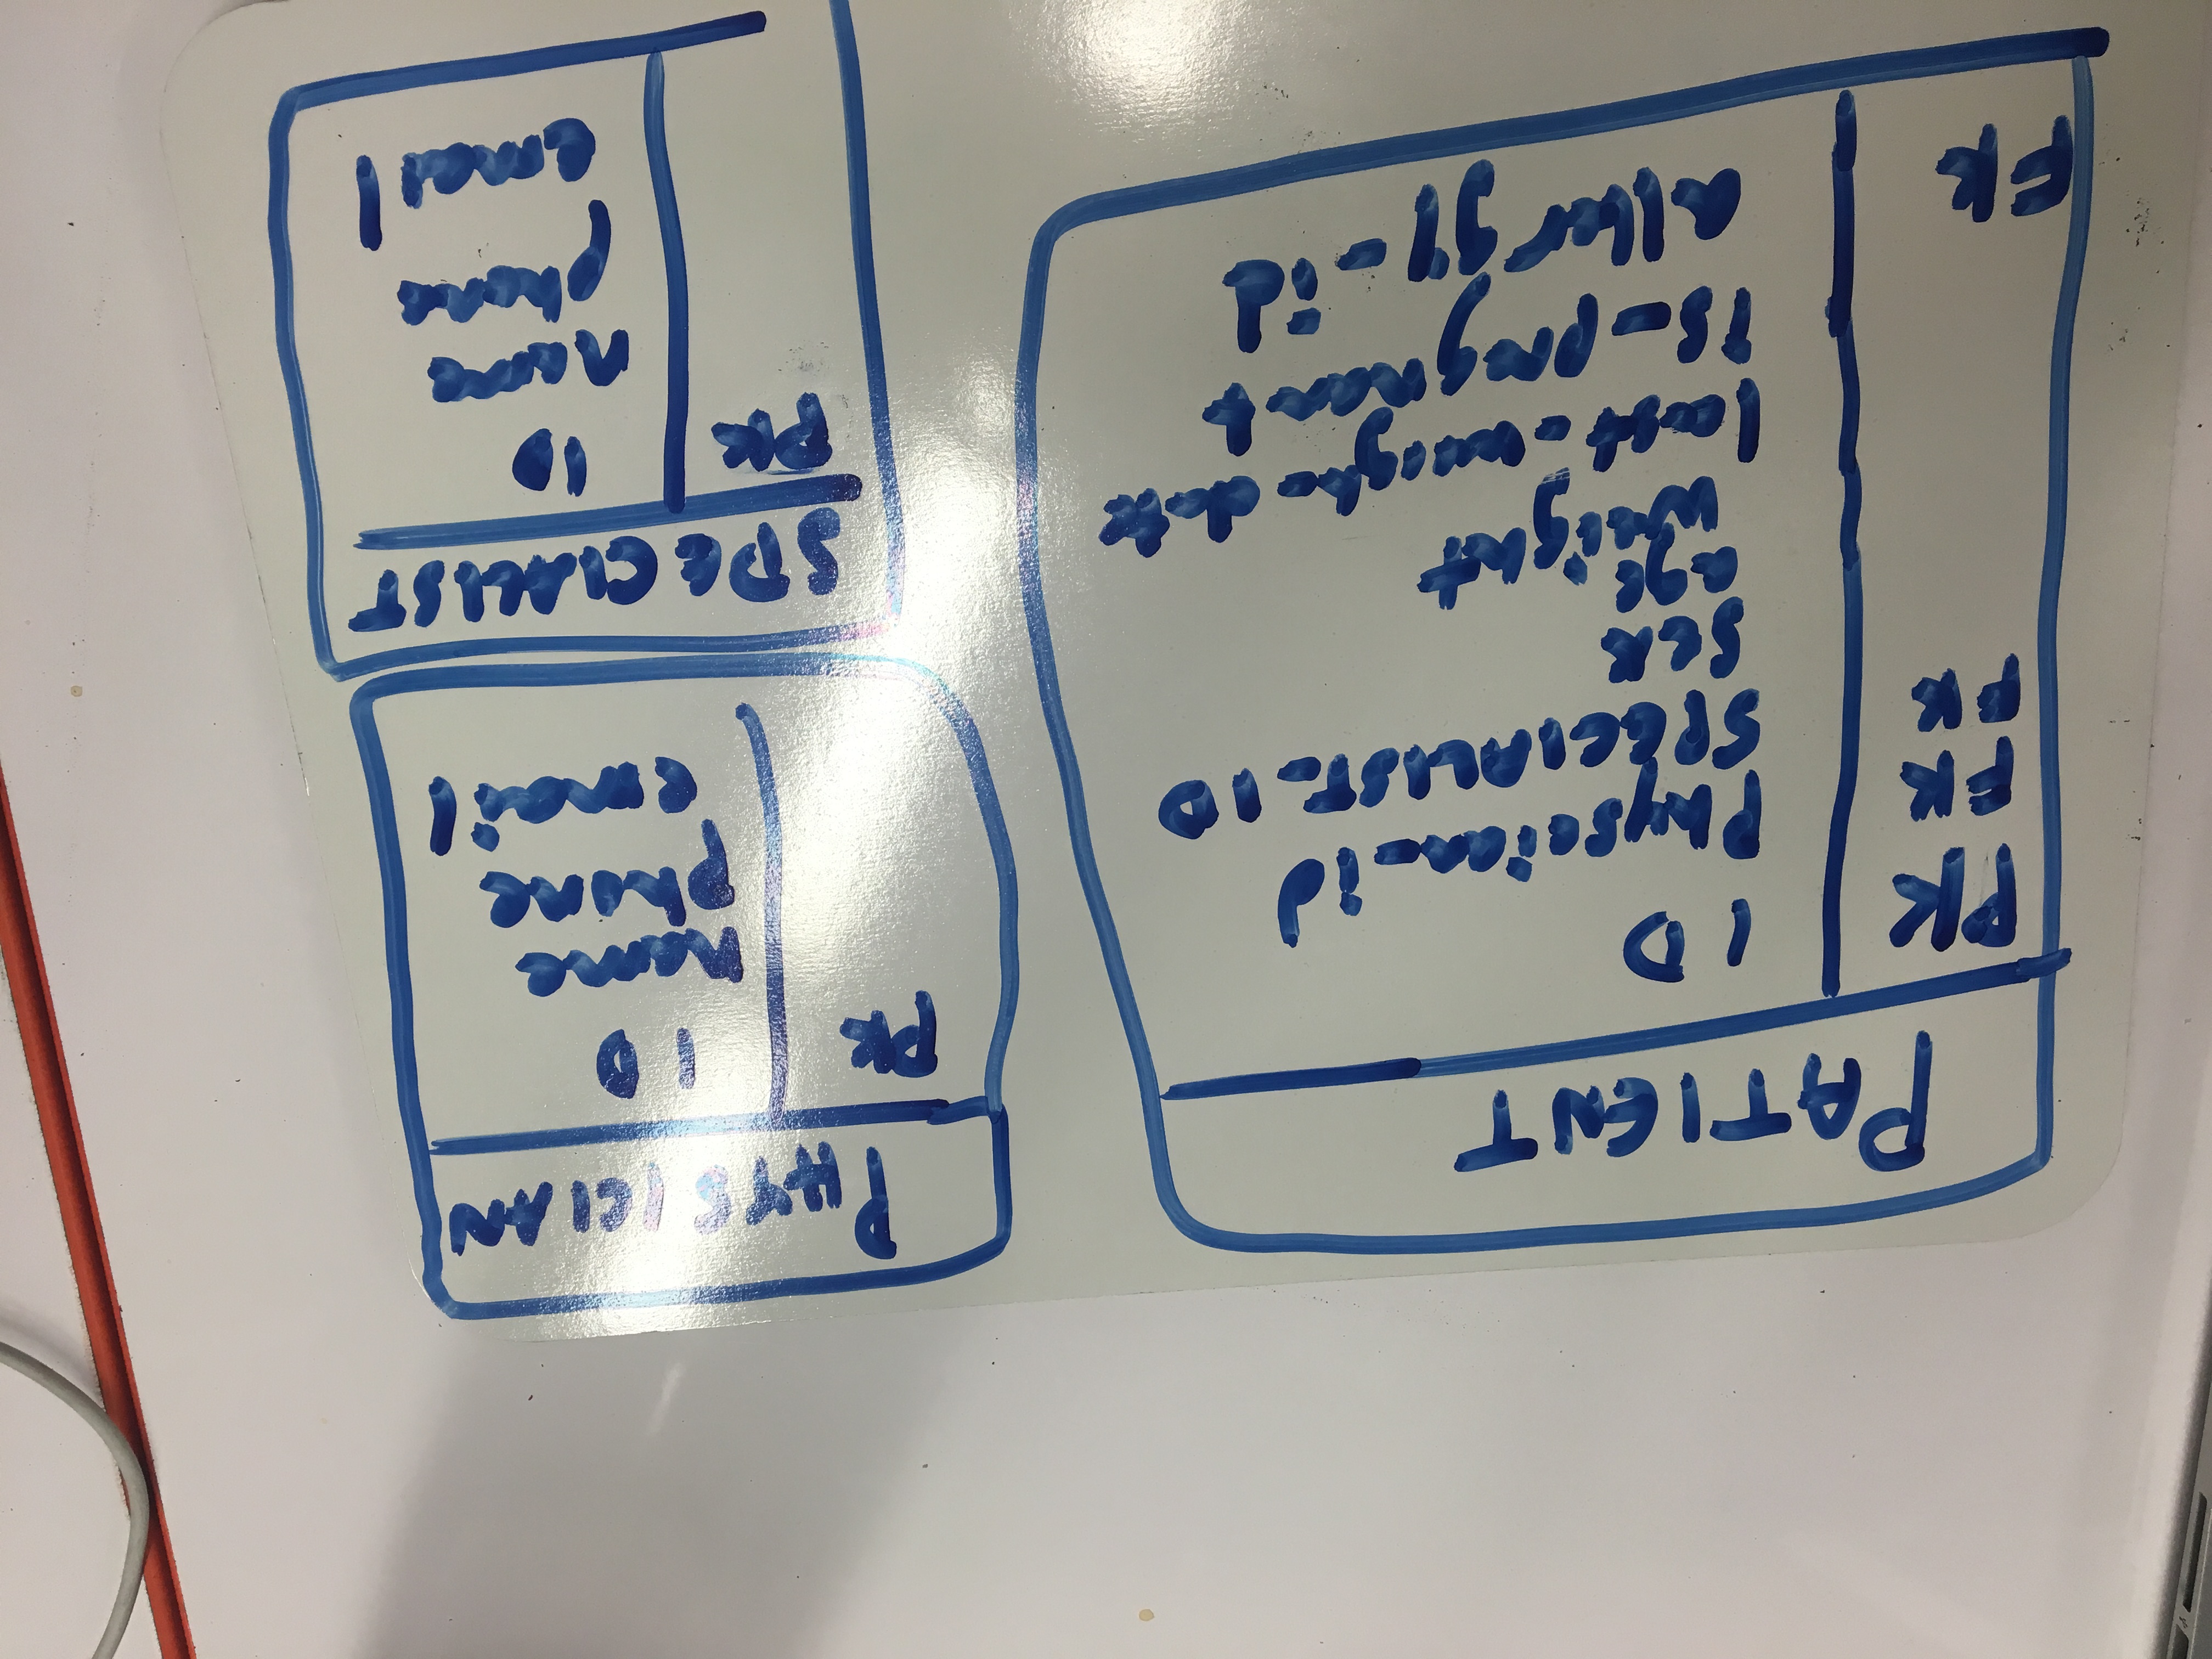 PATIENT
PK ID
FK Physcian_id
FK SPECIALIST_ID
sex
age
weight
last_weigh_date
is_pregnant
FK allergy_id
PHYSICIAN
PK ID
name
phone
email
SPECIALIST
PK ID
name
phone
email